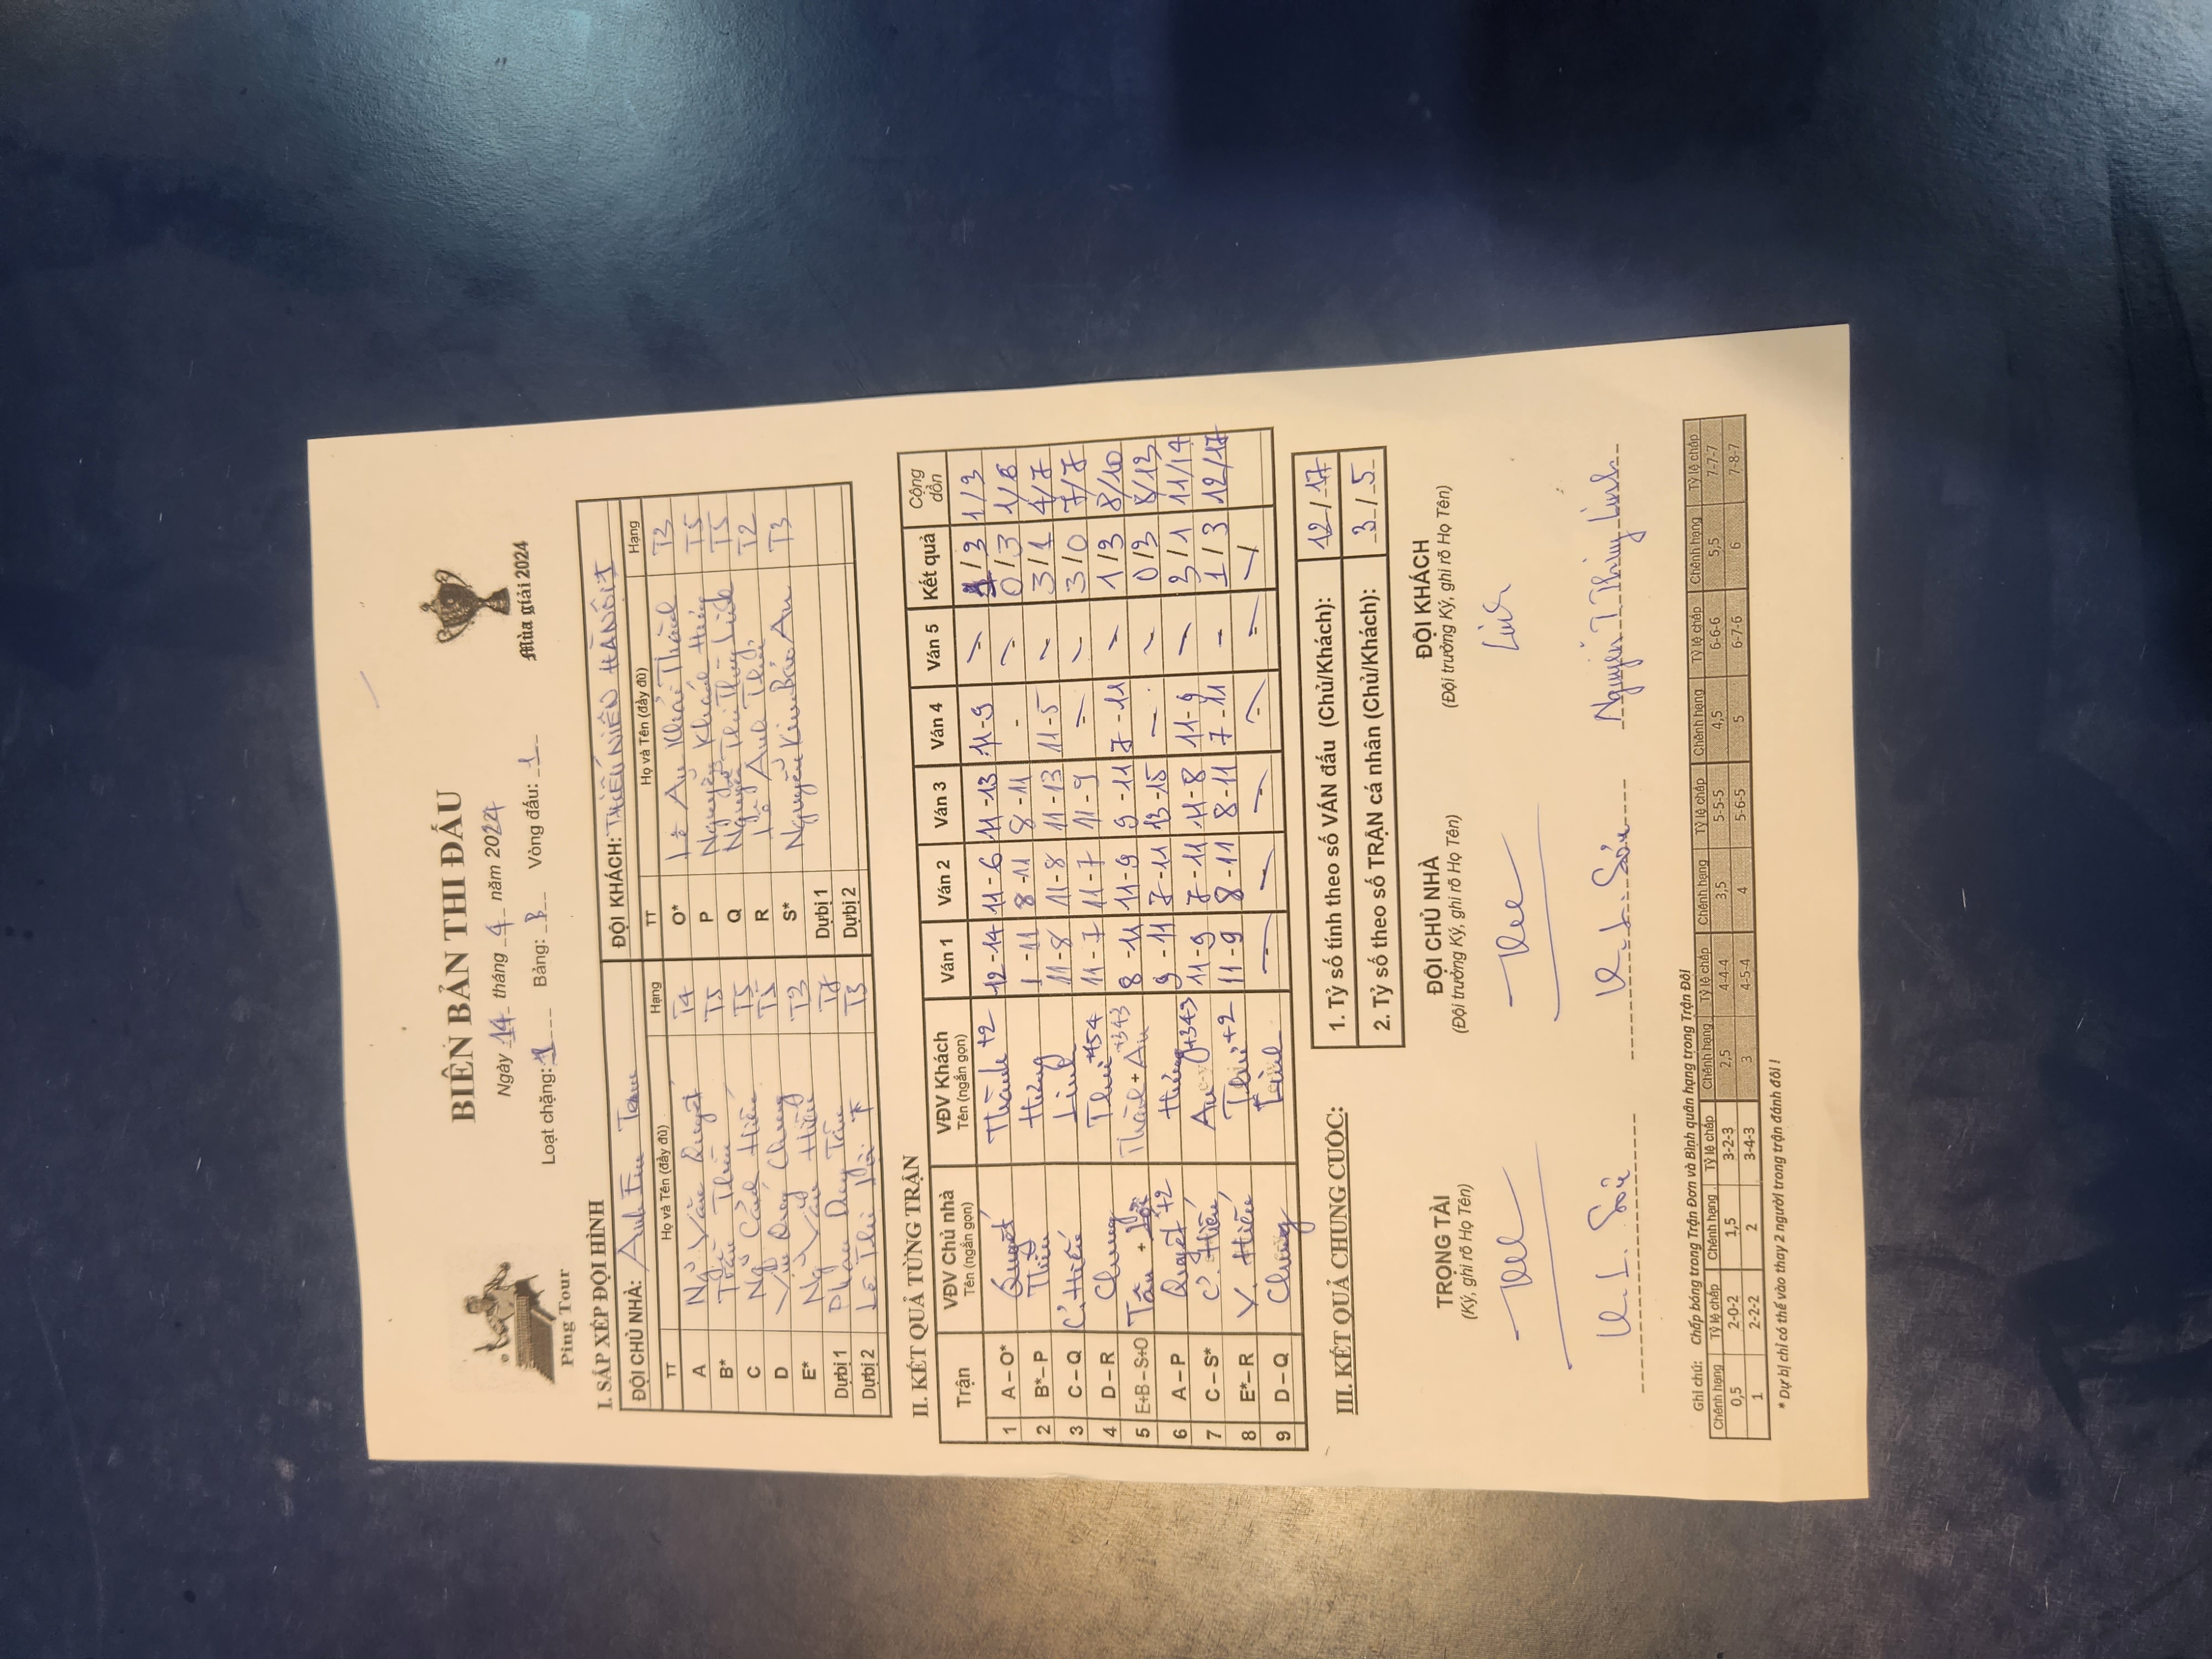 BIÊN BẢN THI ĐẤU
Ping Tour
Mùa giải 2024
Ngày 14 tháng 4 năm 2024
Loạt chặng: 1 Bảng: B Vòng đấu: 1
I. SẮP XẾP ĐỘI HÌNH
ĐỘI CHỦ NHÀ: Anh Em ĐỘI KHÁCH: THIẾU NIÊN HÀ NỘI I
TT Họ và Tên (đầy đủ) Hạng TT Họ và Tên (đầy đủ) Hạng
A Ng Văn Quyết T4 O* Lê An Khải Thành T3
B* Trần Thiện T5 P Nguyễn Khánh Hưng T5
C Ng Cảnh Hiếu T5 Q Nguyễn Thị Thùy Linh T5
D Quý Chung T5 R Anh T2
E* Ng Văn Hiếu T3 S* Nguyễn Kim Bảo An T3
Dự bị 1 Phan Duy Tân Dự bị 1
Dự bị 2 Lê Thị T3 Dự bị 2
II. KẾT QUẢ TỪNG TRẬN
Trận VĐV Chủ nhà Tên (ngắn gọn) VĐV Khách Tên (ngắn gọn) Ván 1 Ván 2 Ván 3 Ván 4 Ván 5 Kết quả Cộng dồn
1 A – O* Quyết Thành +2 12-14 11-6 11-13 11-9 - /3 1/3
2 B* – P Thiện Hưng 1-11 8-11 8-11 - - 0/3 1/6
3 C – Q C. Hiếu Linh 11-8 11-8 11-13 11-5 - 3/1 4/7
4 D – R Chung +454 11-7 11-7 11-9 - - 3/0 7/7
5 E+B – S+O Tân + Thành + An +343 8-11 11-9 9-11 7-11 - 1/3 8/10
6 A – P Quyết +2 Hưng +343 9-11 7-11 13-15 - - 0/3 8/13
7 C – S* C. Hiếu An 11-9 7-11 11-8 11-9 - 3/1 11/14
8 E* – R V. Hiếu +2 11-9 8-11 8-11 7-11 - 1/3 12/17
9 D – Q Chung Linh - - - - - /
III. KẾT QUẢ CHUNG CUỘC:
1. Tỷ số tính theo số VÁN đấu (Chủ/Khách): 12/17
2. Tỷ số theo số TRẬN cá nhân (Chủ/Khách): 3/5
TRỌNG TÀI ĐỘI CHỦ NHÀ ĐỘI KHÁCH
(Ký, ghi rõ Họ Tên) (Đội trưởng Ký, ghi rõ Họ Tên) (Đội trưởng Ký, ghi rõ Họ Tên)
Linh
Nguyễn T Thùy Linh
Ghi chú: Chấp bóng trong Trận Đơn và Bình quân hạng trong Trận Đôi
Chênh hạng Tỷ lệ chấp Chênh hạng Tỷ lệ chấp Chênh hạng Tỷ lệ chấp Chênh hạng Tỷ lệ chấp Chênh hạng Tỷ lệ chấp Chênh hạng Tỷ lệ chấp Chênh hạng Tỷ lệ chấp
0,5 2-0-2 1,5 3-2-3 2,5 4-4-4 3,5 5-5-5 4,5 6-6-6 5,5 7-7-7
1 2-2-2 2 3-4-3 3 4-5-4 4 5-6-5 5 6-7-6 6 7-8-7
* Dự bị chỉ có thể vào thay 2 người trong trận đánh đôi !